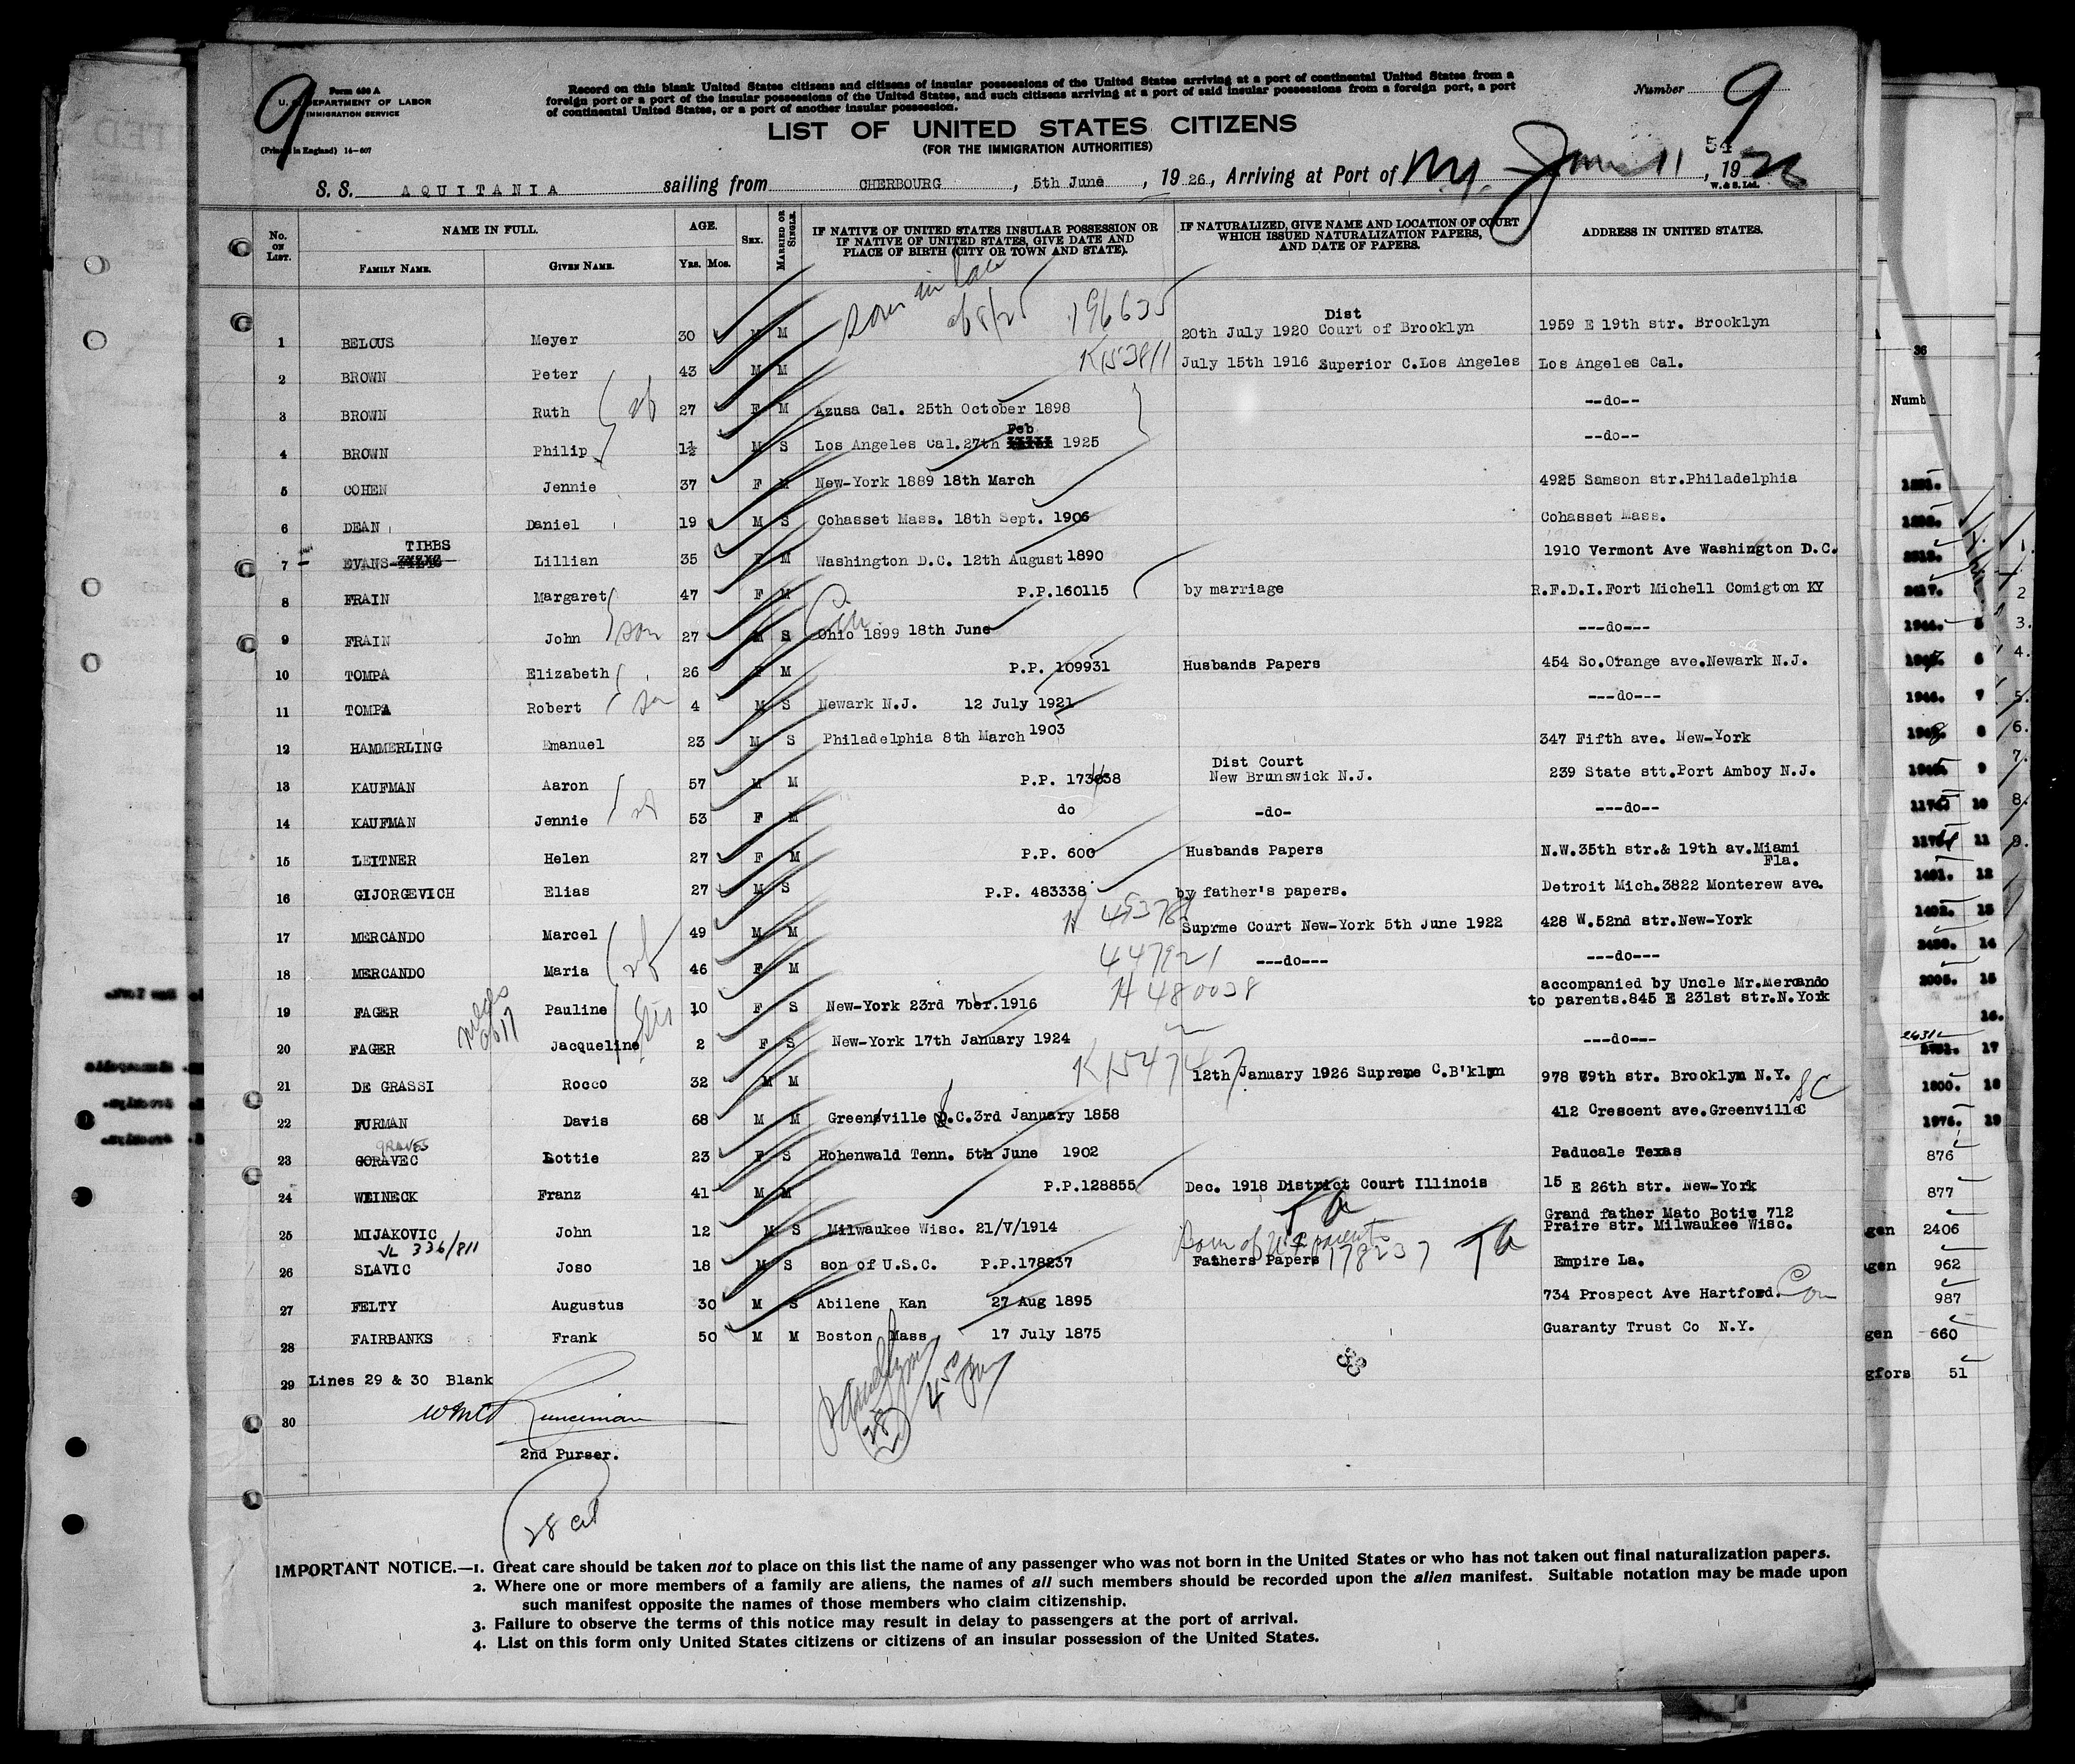 9
Form 630 A
U. S. DEPARTMENT OF LABOR
IMMIGRATION SERVICE
(Printed in England) 14-607
Record on this blank United States citizens and citizens of insular possessions of the United States arriving at a port of continental United States from a
foreign port or a port of the insular possessions of the United States, and such citizens arriving at a port of said insular possessions from a foreign port, a port
of continental United States, or a port of another insular possession.
Number 9
LIST OF UNITED STATES CITIZENS
(FOR THE IMMIGRATION AUTHORITIES)
54
S. S. AQUITANIA sailing from CHERBOURG, 5th June, 1926, Arriving at Port of N.Y. June 11, 1926
W. & S. Ltd.
No. ON LIST. NAME IN FULL. AGE. SEX. MARRIED OR SINGLE. IF NATIVE OF UNITED STATES INSULAR POSSESSION OR IF NATIVE OF UNITED STATES, GIVE DATE AND PLACE OF BIRTH (CITY OR TOWN AND STATE). IF NATURALIZED, GIVE NAME AND LOCATION OF COURT WHICH ISSUED NATURALIZATION PAPERS, AND DATE OF PAPERS. ADDRESS IN UNITED STATES.
FAMILY NAME. GIVEN NAME. YRS. MOS.
son in law
196635
1 BELOUS Meyer 30 M M 20th July 1920 Dist Court of Brooklyn 1959 E 19th str. Brooklyn
2 BROWN Peter 43 M M K153811 July 15th 1916 Superior C.Los Angeles Los Angeles Cal.
3 BROWN Ruth 27 F M Azusa Cal. 25th October 1898 --do--
4 BROWN Philip 1½ M S Los Angeles Cal.27th Feb 1925 --do--
5 COHEN Jennie 37 F M New-York 1889 18th March 4925 Samson str.Philadelphia
6 DEAN Daniel 19 M S Cohasset Mass. 18th Sept. 1906 Cohasset Mass.
7 EVANS- TIBBS Lillian 35 F M Washington D.C. 12th August 1890 1910 Vermont Ave Washington D.C.
8 FRAIN Margaret 47 F M P.P.160115 by marriage R.F.D.I.Fort Michell Comigton KY
9 FRAIN John son 27 M S Cin Ohio 1899 18th June ---do---
10 TOMPA Elizabeth 26 F M P.P. 109931 Husbands Papers 454 So.Orange ave.Newark N.J.
11 TOMPA Robert son 4 M S Newark N.J. 12 July 1921 ---do---
12 HAMMERLING Emanuel 23 M S Philadelphia 8th March 1903 347 Fifth ave. New-York
13 KAUFMAN Aaron 57 M M P.P. 173438 Dist Court New Brunswick N.J. 239 State stt.Port Amboy N.J.
14 KAUFMAN Jennie 53 F M do -do- ---do--
15 LEITNER Helen 27 F M P.P. 600 Husbands Papers N.W.35th str.& 19th av.Miami Fla.
16 GIJORGEVICH Elias 27 M S P.P. 483338 by father's papers. Detroit Mich.3822 Monterew ave.
17 MERCANDO Marcel 49 M M Suprme Court New-York 5th June 1922 428 W.52nd str.New-York
18 MERCANDO Maria 46 F M 447921 ---do--- ---do---
H 480038
19 FAGER Pauline 10 F S New-York 23rd 7ber.1916 accompanied by Uncle Mr.Mercando to parents.845 E 231st str.N.York
20 FAGER Jacqueline sis 2 F S New-York 17th January 1924 ---do---
21 DE GRASSI Rocco 32 M M K154747 12th January 1926 Supreme C.B'klyn 978 79th str. Brooklyn N.Y.
22 FURMAN Davis 68 M M Greenville S.C.3rd January 1858 412 Crescent ave.Greenville SC
23 GORAVEC GRAVES Lottie 23 F S Hohenwald Tenn. 5th June 1902 Paducale Texas
24 WEINECK Franz 41 M M P.P.128855 Dec. 1918 District Court Illinois 15 E 26th str. New-York
25 MIJAKOVIC John 12 M S Milwaukee Wisc. 21/V/1914 Grand father Mato Botiv 712 Praire str. Milwaukee Wisc.
VL 336/811
Born of U S parents
26 SLAVIC Joso 18 M S son of U.S.C. P.P.178237 Fathers Papers 178237 Empire La.
27 FELTY Augustus 30 M S Abilene Kan 27 Aug 1895 734 Prospect Ave Hartford. Con
28 FAIRBANKS Frank 50 M M Boston Mass 17 July 1875 Guaranty Trust Co N.Y.
33
29 Lines 29 & 30 Blank
30
2nd Purser.
28 cit
IMPORTANT NOTICE.—1. Great care should be taken not to place on this list the name of any passenger who was not born in the United States or who has not taken out final naturalization papers.
2. Where one or more members of a family are aliens, the names of all such members should be recorded upon the alien manifest. Suitable notation may be made upon
such manifest opposite the names of those members who claim citizenship.
3. Failure to observe the terms of this notice may result in delay to passengers at the port of arrival.
4. List on this form only United States citizens or citizens of an insular possession of the United States.
36
Numb
876
877
gen 2406
gen 962
987
gen 660
gfors 51